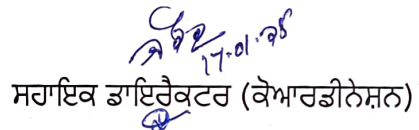 17-01-25
ਸਹਾਇਕ ਡਾਇਰੈਕਟਰ (ਕੋਆਰਡੀਨੇਸ਼ਨ)